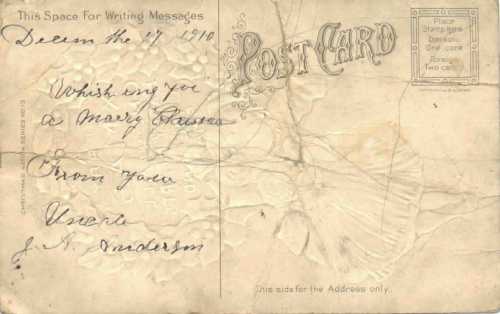 This Space For Writing Messages
Decem the 17 1910
Whish eng you
a Marry
From your
Unc
J. N. Anderson
CHRISTMAS
POST CARD
Place
Stamp here
Domestic
One cent
Foreign
Two cents
This side for the Address only.